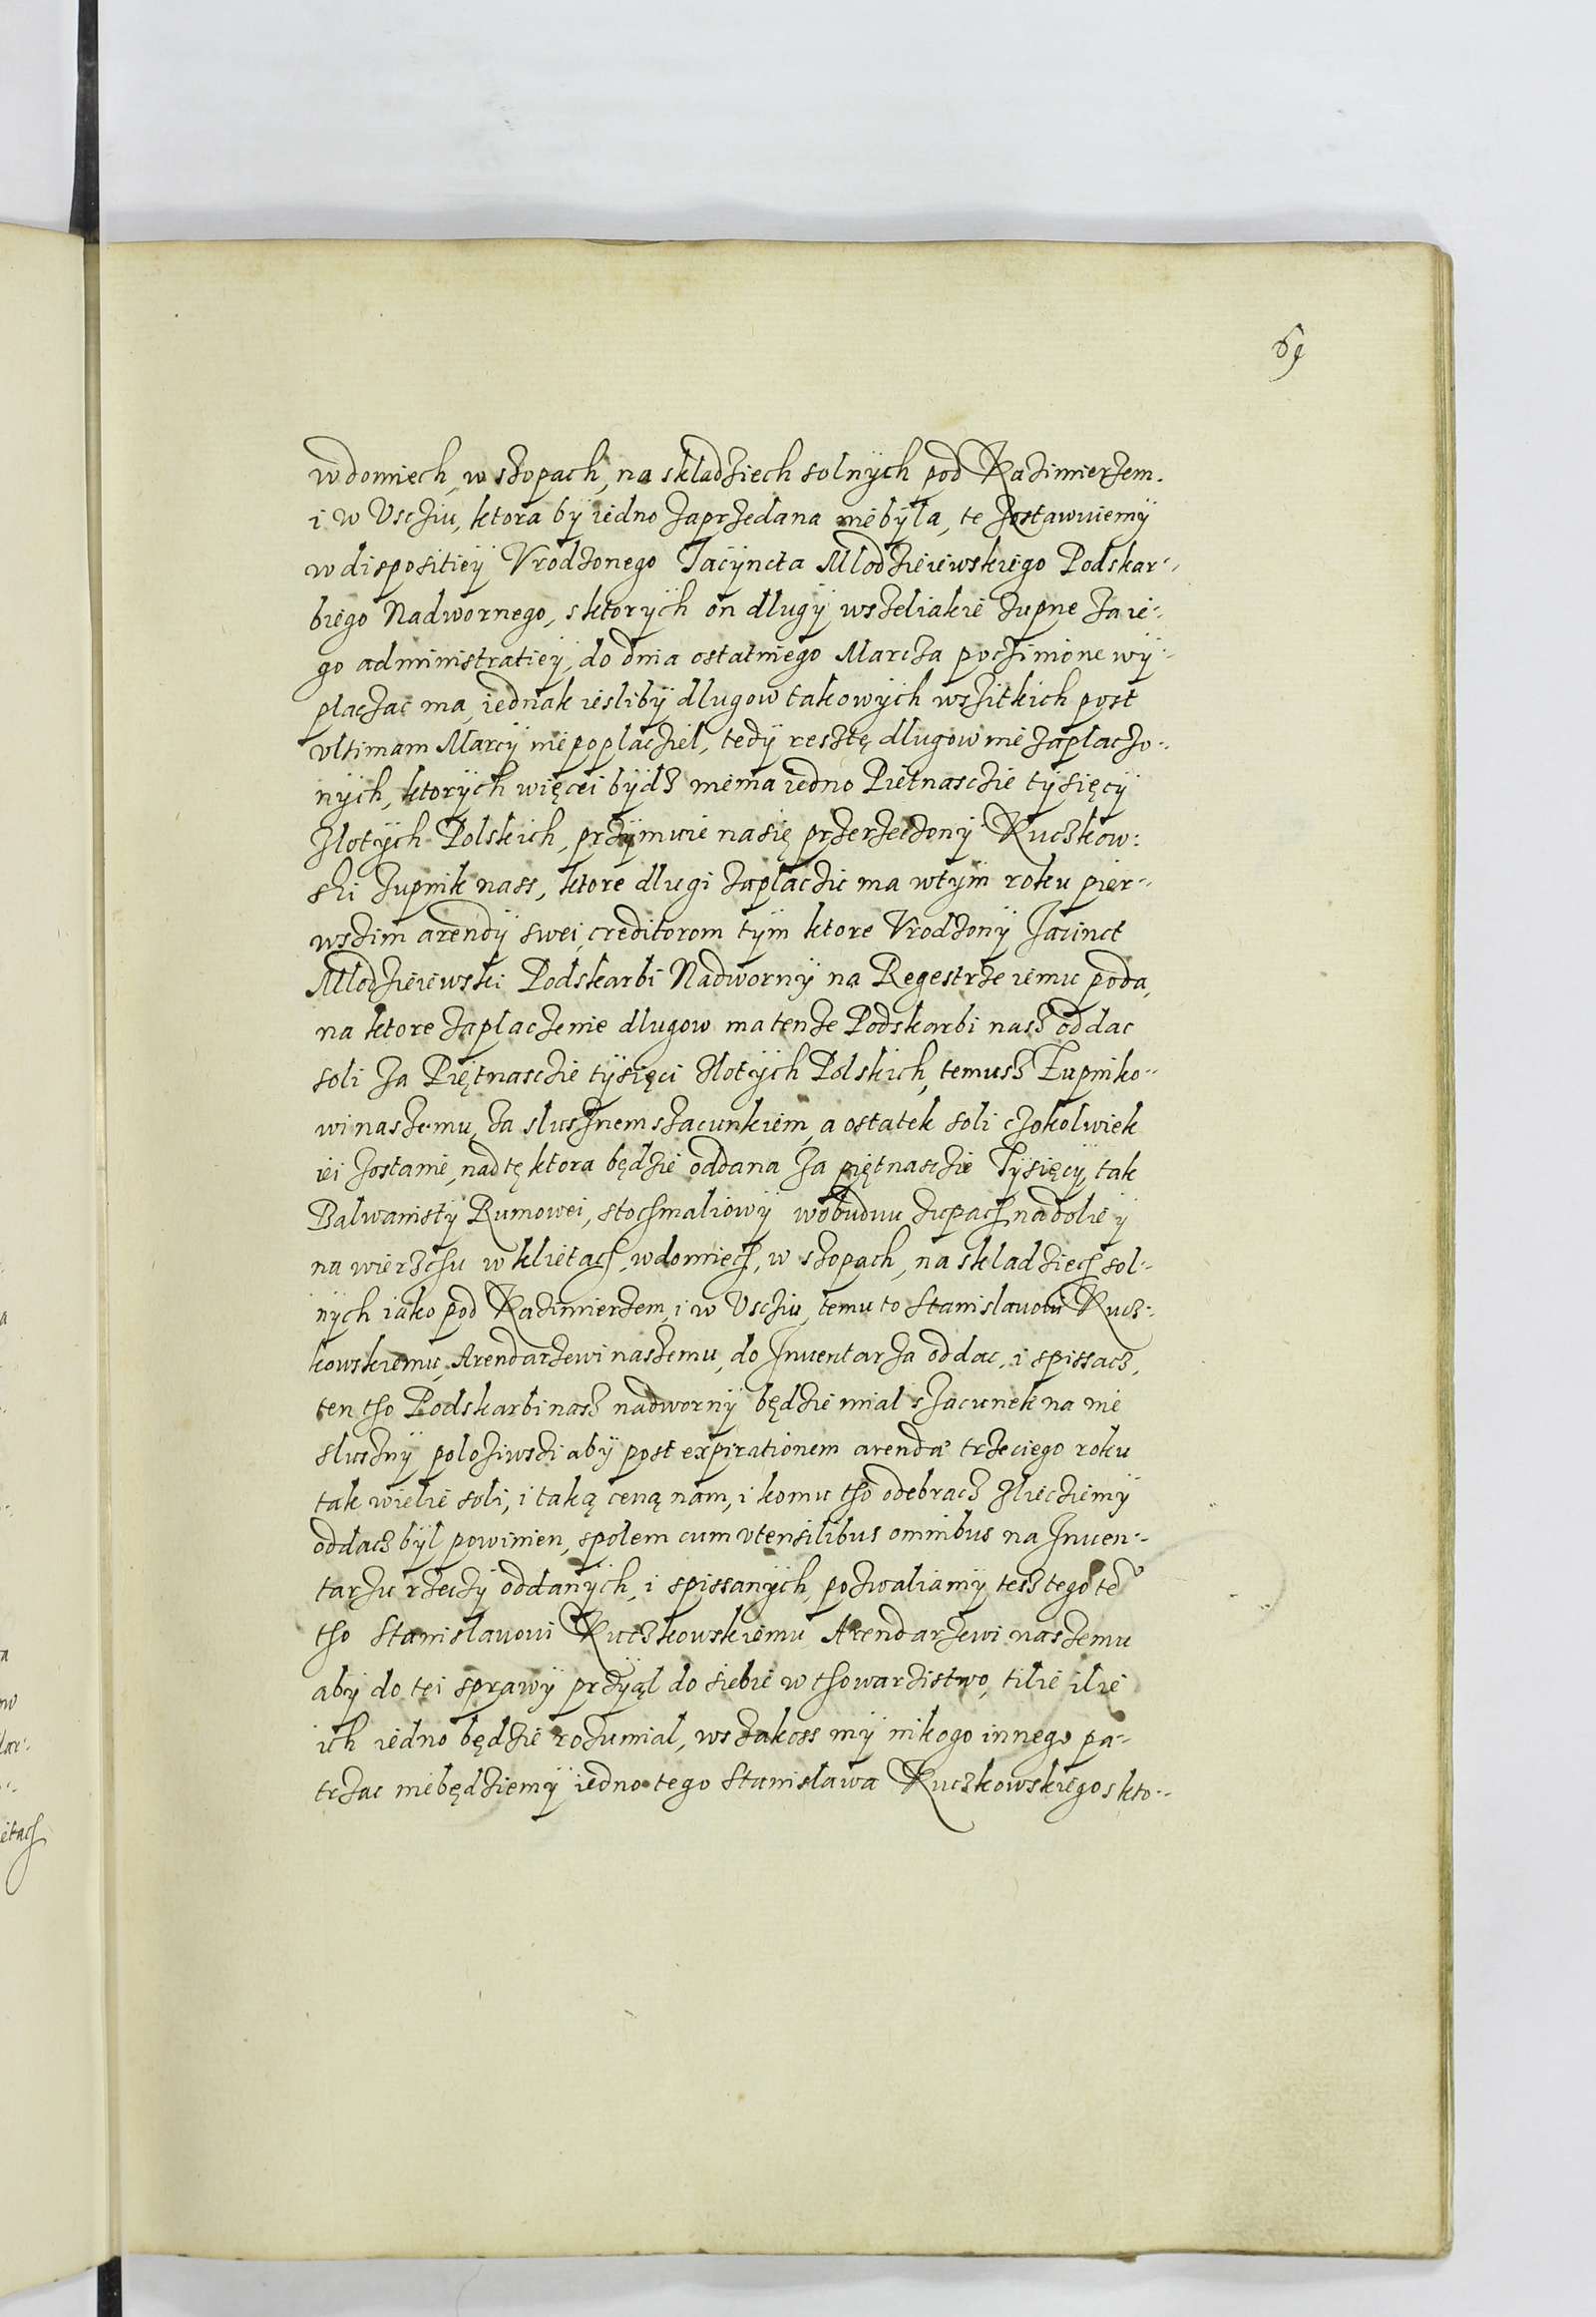 69
w domiech, w szopach, na skladziech solnych pod Kazimierzem.
i w Vsciu, ktora by iedno zaprzedana niebyla, te zostawuiemÿ
w dispositieÿ Vrodzonego Jacÿncta Mlodzieiewskiego Podskar-
biego Nadwornego, sktorÿch on dlugÿ wszeliakie zupne za ie-
go administratieÿ, do dnia ostatniego Marcza poczinione wÿ-
placzac ma, iednak iesliby dlugow takowÿch wszitkich post
vltimam Marcÿ niepoplacziel, tedÿ resztę dlugow nie zaplaczo-
nÿch, ktorÿch więcei bÿdz niema iedno Pietnasczie tÿsięcÿ
Zlotÿch Polskich, przÿmuie na się przerzeczonÿ Kuczkow:
ski zupnik nass, ktore dlugi zaplaczic ma w tÿm roku pier-
wszim arendÿ swei, creditorom tÿm ktore Vrodzonÿ Jacinct
Mlodzieiewski Podskarbi Nadwornÿ na Regestrze iemu poda,
na ktore zaplaczenie dlugow ma tenze Podskarbi nasz oddac
soli za Piętnasczie tÿsięci Zlotÿch Polskich, temusz Zupniko-
wi naszemu, za slusznem szacunkiem, a ostatek soli czokolwiek
iei zostanie, nad tę ktora będzie oddana za piętnasczie Tÿsięcÿ, tak
Balwanistÿ Rumowei, stochmaliowÿ w obudwu zupach na dolie ÿ
na wierzchu w klietach, w domiech, w szopach, na skladziech sol-
nÿch iako pod Kazimierzem, i w Vsciu, temu to Stanislavowi Kucz-
kowskiemu, Arendarzewi naszemu, do Inuentarza oddac, i spissacz,
ten tho Podskarbi nasz nadwornÿ będzie mial szacunek na nie
slusznÿ poloziwszi abÿ post expirationem arendæ trzeciego roku
tak wielie soli, i taką ceną nam, i komu tho odebracz zlieciemÿ
oddacz bÿl powinien, spolem cum vtensilibus omnibus na Inuen-
tarzu rzeczÿ oddanÿch, i spissanÿch, pozwaliamÿ tesz tego te
tho Stanislavowi Kuczkowskiemu Arendarzewi naszemu
abÿ do tei sprawÿ przÿąl do siebie w thowarzistwo, tilie ilie
ich iedno będzie rozumial, wszakoss mÿ nikogo innego pa-
trzac niebędziemÿ iedno tego Stanislawa Kuczkowskiego skto-